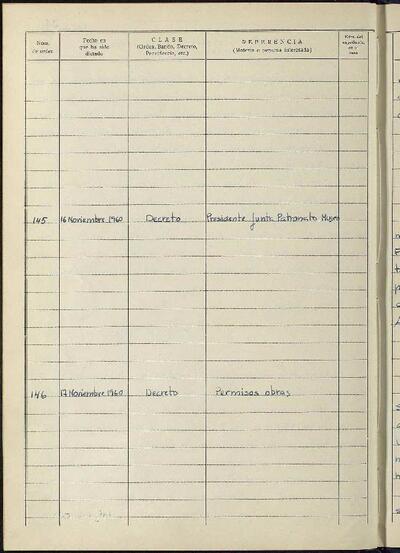 Núm. de orden
Fecha en que ha sido dictado
CLASE
(Orden, Bando, Decreto, Providencia, etc.)
REFERENCIA
(Materia o persona interesada)
145 16 Noviembre 1960 Decreto Presidente Junta Patronato Museo
146 17 Noviembre 1960 Decreto Permisos obras